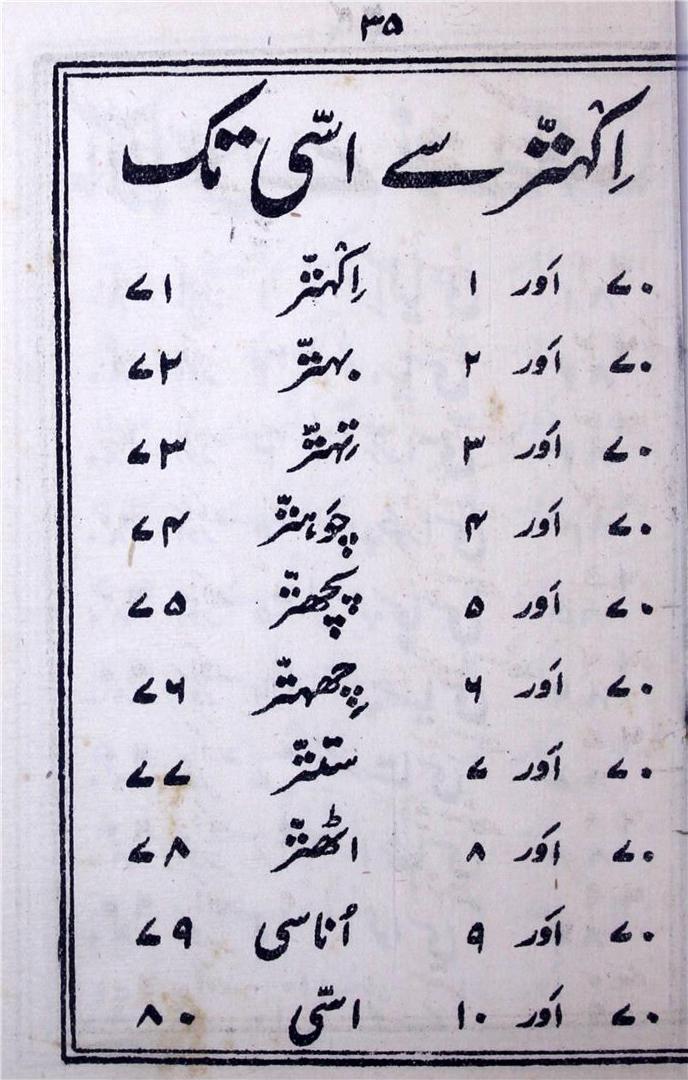 ۳۵
اِکہتّر سے اسّی تک
۷۰ اَور ۱ اِکہتّر ۷۱
۷۰ اَور ۲ بہتّر ۷۲
۷۰ اَور ۳ تِہتّر ۷۳
۷۰ اَور ۴ چَوہتّر ۷۴
۷۰ اَور ۵ پچھتّر ۷۵
۷۰ اَور ۶ چِھہتّر ۷۶
۷۰ اَور ۷ ستتّر ۷۷
۷۰ اَور ۸ اٹھتّر ۷۸
۷۰ اَور ۹ اُناسی ۷۹
۷۰ اَور ۱۰ اسّی ۸۰